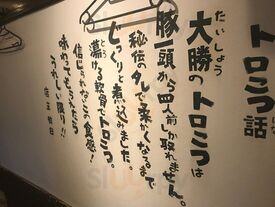 トロミつ話
たいしょう
大勝のトロミつは
豚一頭から四人前しか取れません。
秘伝のタレで柔かくなるまで
じっくりと煮込みました。
とろ
蕩ける軟骨でトロミつ。
信じられないこの食感！
味わってもらえたら
うれしい限り！！
店主 敬白